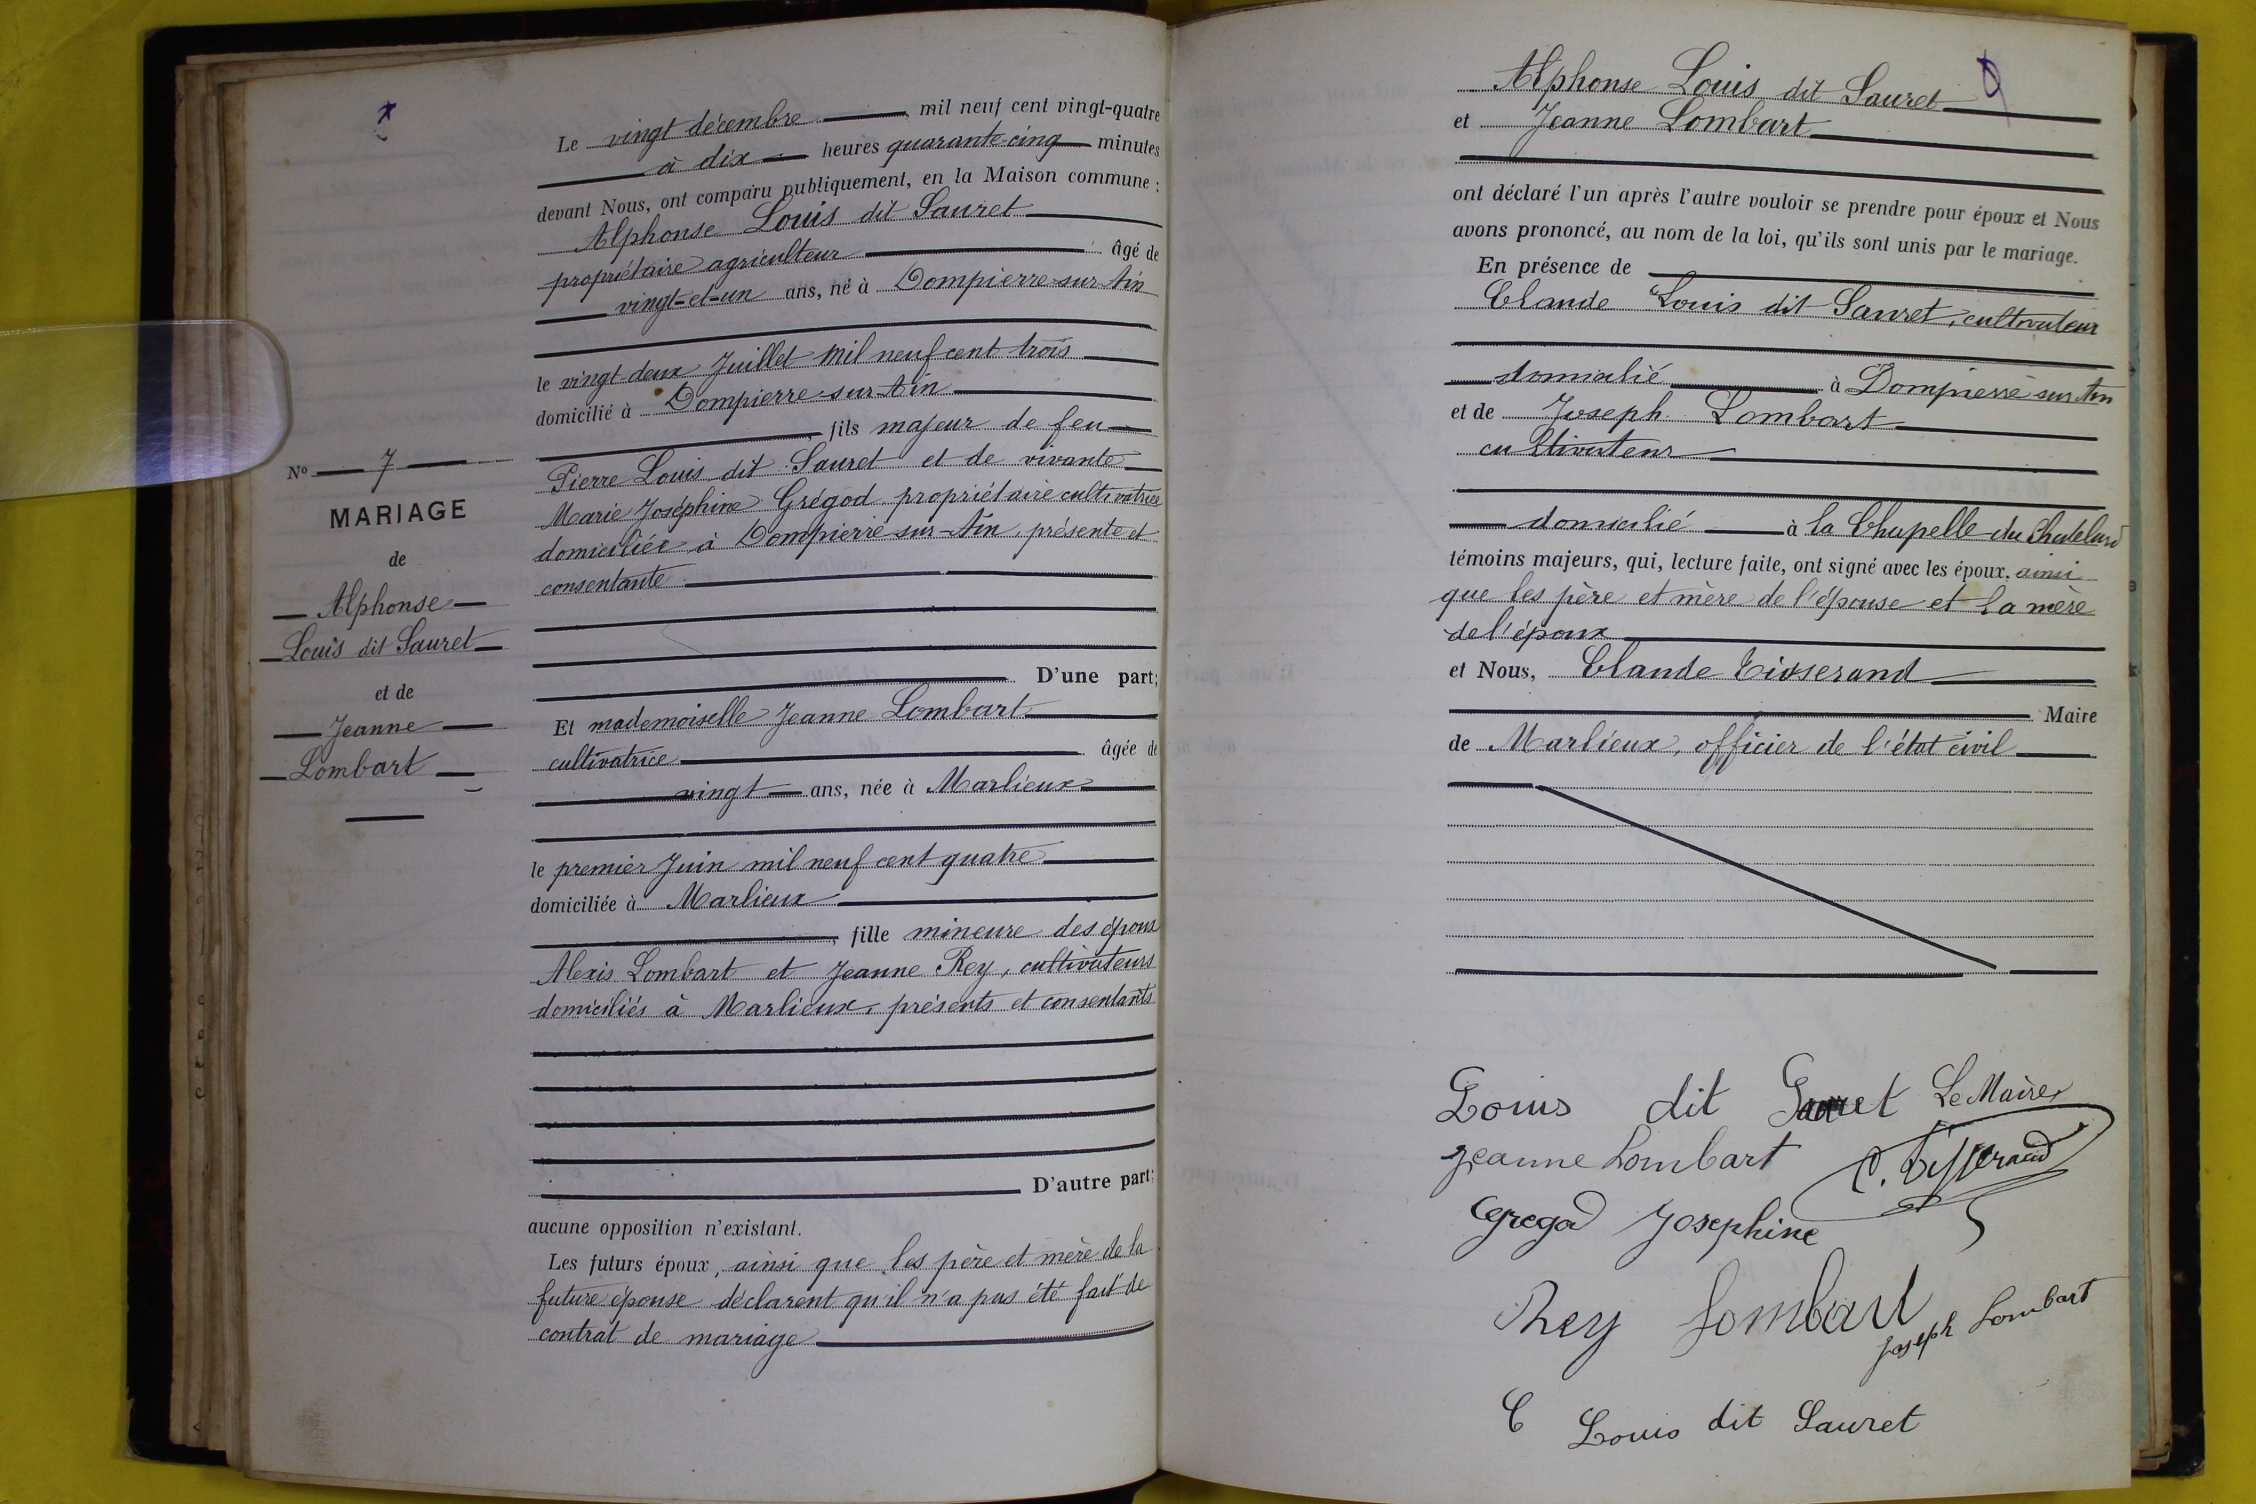 N° 7
MARIAGE
de
Alphonse
Louis dit Sauret
et de
Jeanne
Lombart
Le vingt décembre mil neuf cent vingt-quatre
à dix heures quarante-cinq minutes
devant Nous, ont comparu publiquement, en la Maison commune :
Alphonse Louis dit Sauret
propriétaire agriculteur âgé de
vingt-et-un ans, né à Dompierre-sur-Ain
le vingt-deux Juillet mil neuf cent trois
domicilié à Dompierre-sur-Ain
, fils majeur de feu
Pierre Louis dit Sauret et de vivante
Marie Joséphine Grégod, propriétaire cultivatrice
domiciliée à Dompierre-sur-Ain, présente et
consentante
D'une part;
Et mademoiselle Jeanne Lombart
cultivatrice âgée de
vingt ans, née à Marlieux
le premier Juin mil neuf cent quatre
domiciliée à Marlieux
, fille mineure des époux
Alexis Lombart et Jeanne Rey, cultivateurs
domiciliés à Marlieux, présents et consentants
D'autre part;
aucune opposition n'existant.
Les futurs époux, ainsi que les père et mère de la
future épouse déclarent qu'il n'a pas été fait de
contrat de mariage
Alphonse Louis dit Sauret
et Jeanne Lombart
ont déclaré l'un après l'autre vouloir se prendre pour époux et Nous
avons prononcé, au nom de la loi, qu'ils sont unis par le mariage.
En présence de
Claude Louis dit Sauret, cultivateur
domicilié à Dompierre sur Ain
et de Joseph Lombart
cultivateur
domicilié à la Chapelle du Chatelard
témoins majeurs, qui, lecture faite, ont signé avec les époux, ainsi
que les père et mère de l'épouse et la mère
de l'époux
et Nous, Claude Tisserand
Maire
de Marlieux, officier de l'état civil
Louis dit Sauret Le Maire,
Jeanne Lombart C. Tisserand
Gregod Josephine
Rey Lombard
Joseph Lombart
C Louis dit Sauret